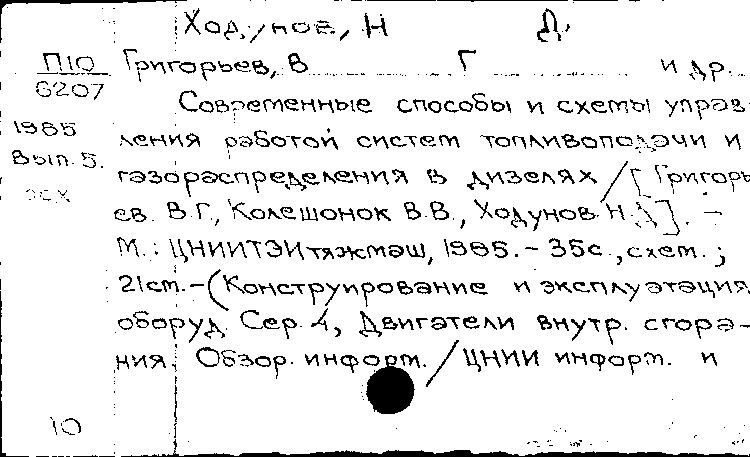 Ходунов, Н Д.
П10 Григорьев, В Г и др.
6207
Современные способы и схемы управ-
1985 ления работой систем топливоподачи и
Вып. 5. газораспределения в дизелях / [Григорь-
ев. В.Г., Колешонок В.В., Ходунов Н.Д]. –
М.: ЦНИИТЭИтяжмаш, 1985. – 35с., схем.;
21см. – (Конструирование и эксплуатация
оборуд. Сер. 4, Двигатели внутр. сгора-
ния. Обзор. информ. / ЦНИИ информ. и
10